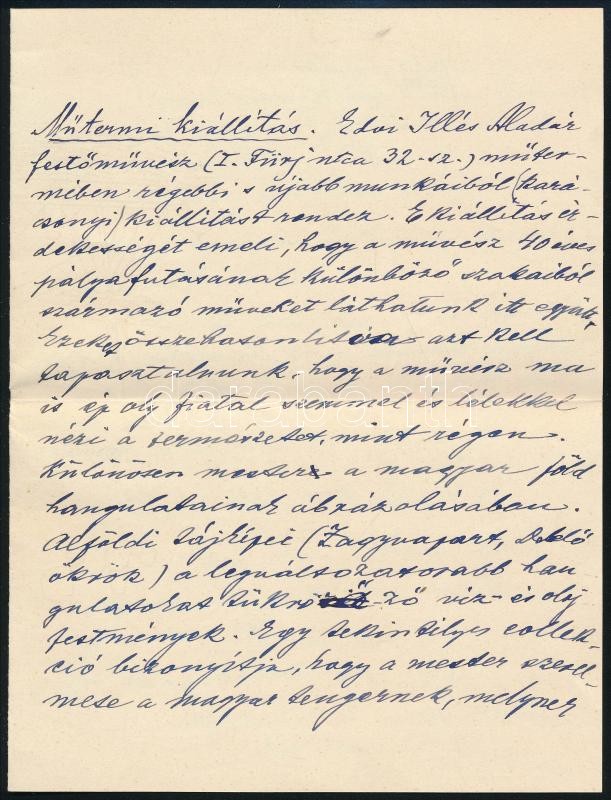 Műtermi kiállítás. Edvi Illés Aladár
festőművész (I. Fürj utca 32. sz.) műter-
mében régebbi s újabb munkáiból (kará-
csonyi) kiállítást rendez. E kiállítás ér-
dekességét emeli, hogy a művész 40 éves
pályafutásának különböző szakaiból
származó műveket láthatunk itt együtt.
Ezeket összehasonlítva azt kell
tapasztalnunk, hogy a művész ma
is ép oly fiatal szemmel és lélekkel
nézi a természetet, mint régen.
Különösen mestere a magyar föld
hangulatainak ábrázolásában.
Alföldi tájképei (Zagyvapart, Delelő
ökrök) a legváltozatosabb han
gulatokat tükröző víz- és olaj
festmények. Egy tekintélyes collek-
ció bizonyítja, hogy a mester szerel-
mese a magyar tengernek, melynek
darabanth